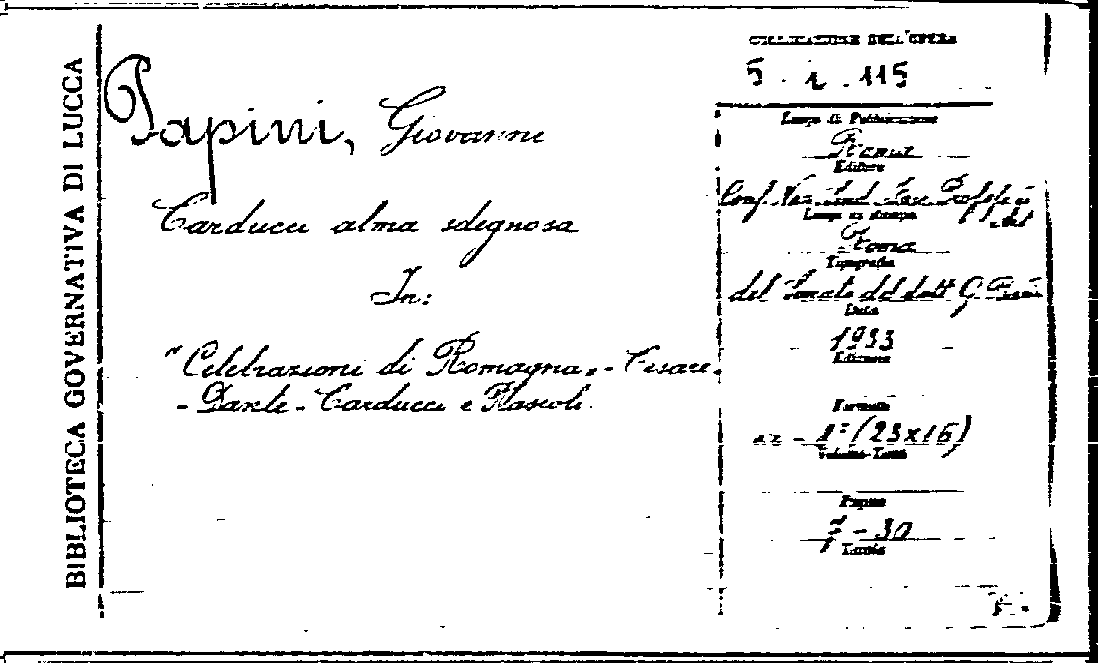 BIBLIOTECA GOVERNATIVA DI LUCCA
Papini, Giovanni
Carducci alma sdegnosa
In:
"Celebrazioni di Romagna" - Cesare -
- Dante - Carducci e Pascoli.
COLLOCAZIONE DELL'OPERA
5. 1. 115
Luogo di Pubblicazione
Roma
Editore
Conf. Naz. Sind. Fasc. Profess. e
Art.
Luogo di stampa
Roma
Tipografia
del Senato del dott. G.
Data
1933
Edizione
Formato
- 8° (23x16)
Volume-Tomo
Pagine
7 - 30
Tavole